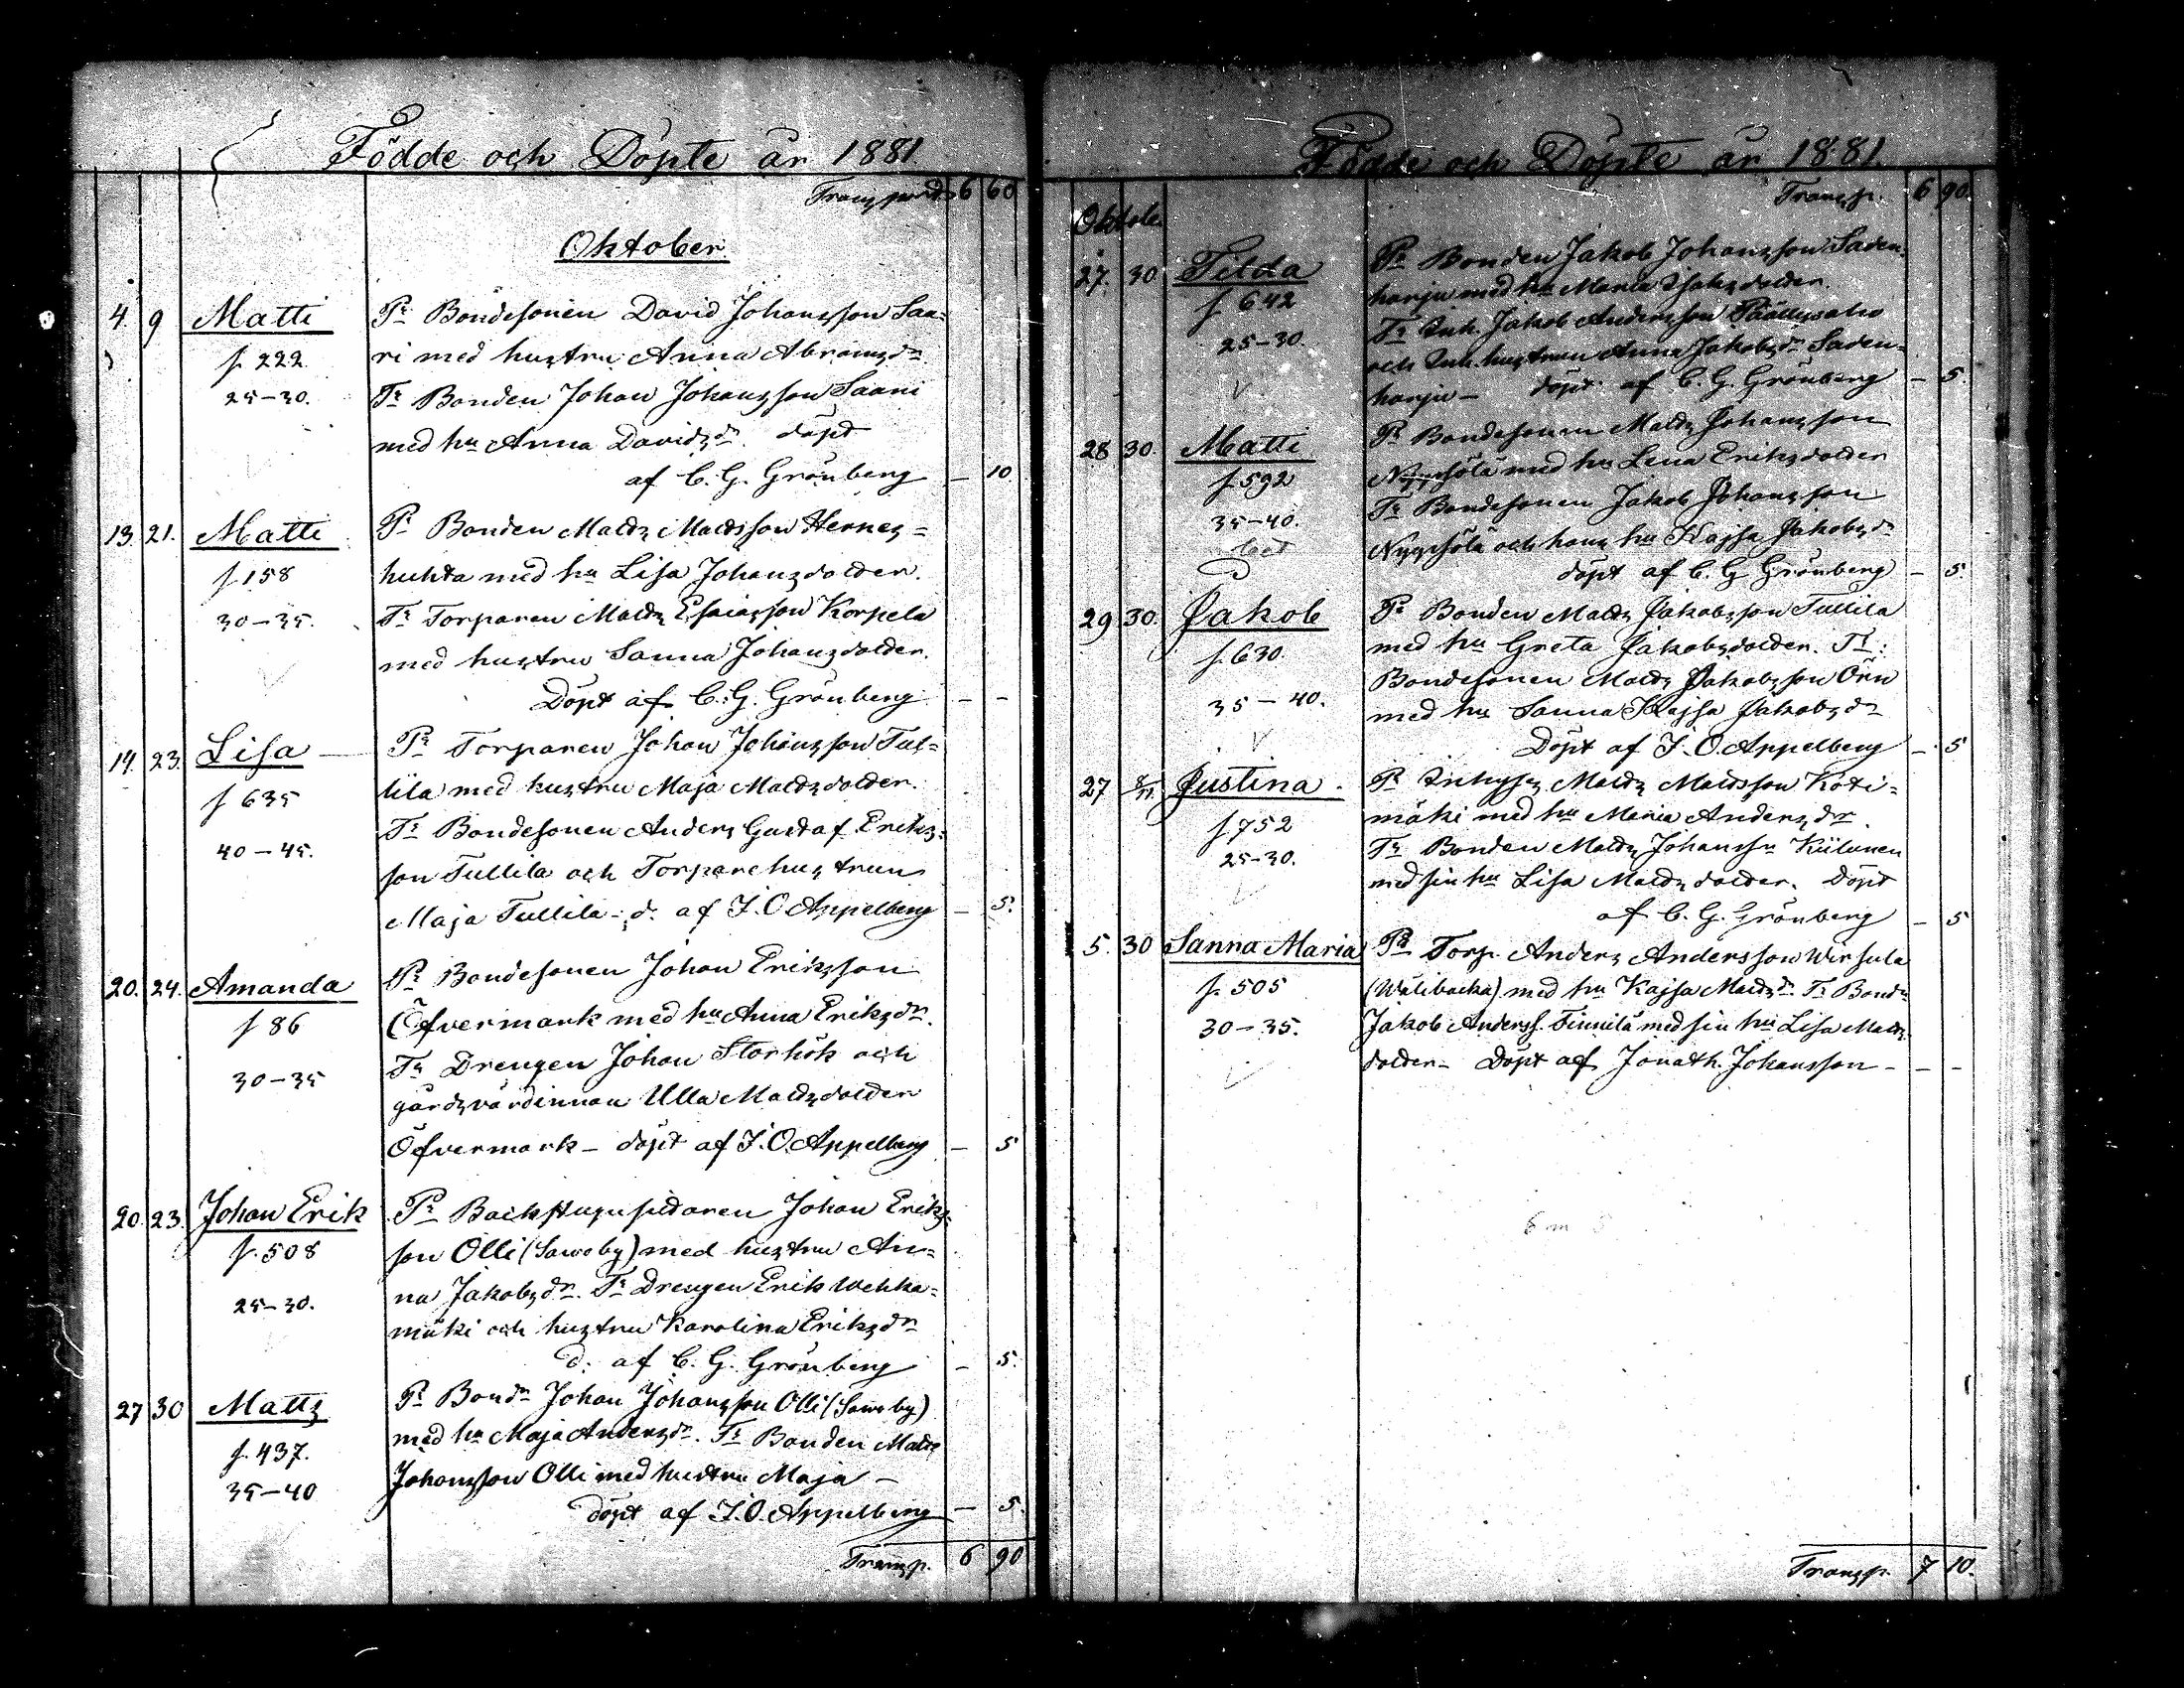 Födde och Döpte år 1881
Transport 6 60
Oktober
4. 9 Matti Pr Bondesonen David Johansson Saa-
f 222. ri med hustru Anna Abramsdr
25-30. Fr Bonden Johan Johansson Saari
med hu Anna Davidsdr. döpt
af C. G. Grönberg — 10.
13. 21. Matti Pr Bonden Matts Mattsson Hernes-
f. 158 huhta med hu Lisa Johansdotter.
30-35. Fr Torparen Matts Esaiasson Korpela
med hustru Sanna Johansdotter.
Döpt af C. G. Grönberg — —
14. 23. Lisa — Pr Torparen Johan Johansson Tul-
f 635 lila med hustru Maja Mattsdotter.
40-45. Fr Bondesonen Anders Gustaf Eriks-
son Tullila och Torparehustrun
Maja Tullila - d. af J. O. Appelberg — 5.
20. 24. Amanda Pr Bondesonen Johan Eriksson
f 86 Öfvermark med hu Anna Eriksdr.
30-35 Fr Drengen Johan Storhök och
gårdsvärdinnan Ulla Mattsdotter
Öfvermark — döpt af J. O. Appelberg — 5
20. 23. Johan Erik Pr Backstugusidaren Johan Eriks-
f. 508 son Olli (Sawoby) med hustru An-
25-30. na Jakobsdr. Fr Drengen Erik Wehka-
mäki och hustru Karolina Eriksdr
d. af C. G. Grönberg — 5.
27 30 Matts Pr Bondn Johan Johansson Olli (Sawoby)
f. 437. med hu Maja Andersdr. Fr Bonden Matts
35-40 Johansson Olli med hustru Maja —
döpt af J. O. Appelberg — 5.
Transp. 6 90
Födde och Döpte år 1881.
Transp. 6 90.
Oktober
27. 30 Tilda Pr Bonden Jakob Johansson Saden-
f 642 harju med hu Maria Isaksdotter.
25-30. Fr Inh. Jakob Andersson
och Inh. hustrun Anna Jakobsdr Saden-
harju — döpt af C. G. Grönberg — 5.
28 30. Matti Pr Bondesonen Matts Johansson
f. 592 med hu Lena Eriksdotter
35-40. Fr Bondesonen Jakob Johansson
och hans hu Kajsa Jakobsdr
döpt af C. G. Grönberg — 5.
29 30. Jakob Pr Bonden Matts Jakobsson Tullila
f. 630. med hu Greta Jakobsdotter. Fr:
Bondesonen Matts Jakobsson Örn
35-40. med hu Sanna Kajsa Jakobsdr
Döpt af J. O. Appelberg — 5
27 8/11 Justina. Pr Inhyses Matts Mattsson Koti-
f 752 mäki med hu Maria Andersdr.
25-30. Fr Bonden Matts Johansson Kiilunen
med sin hu Lisa Mattsdotter. Döpt
af C. G. Grönberg — 5
5. 30 Sanna Maria Pr Torp. Anders Andersson Wirsula
f. 505 (Wälibacka) med hu Kajsa Mattsdr. Fr Bondn
30-35. Jakob Anderss. Finnilä med sin hu Lisa Matts-
dotter — Döpt af Jonath. Johansson — — —
Transp. 7 10.